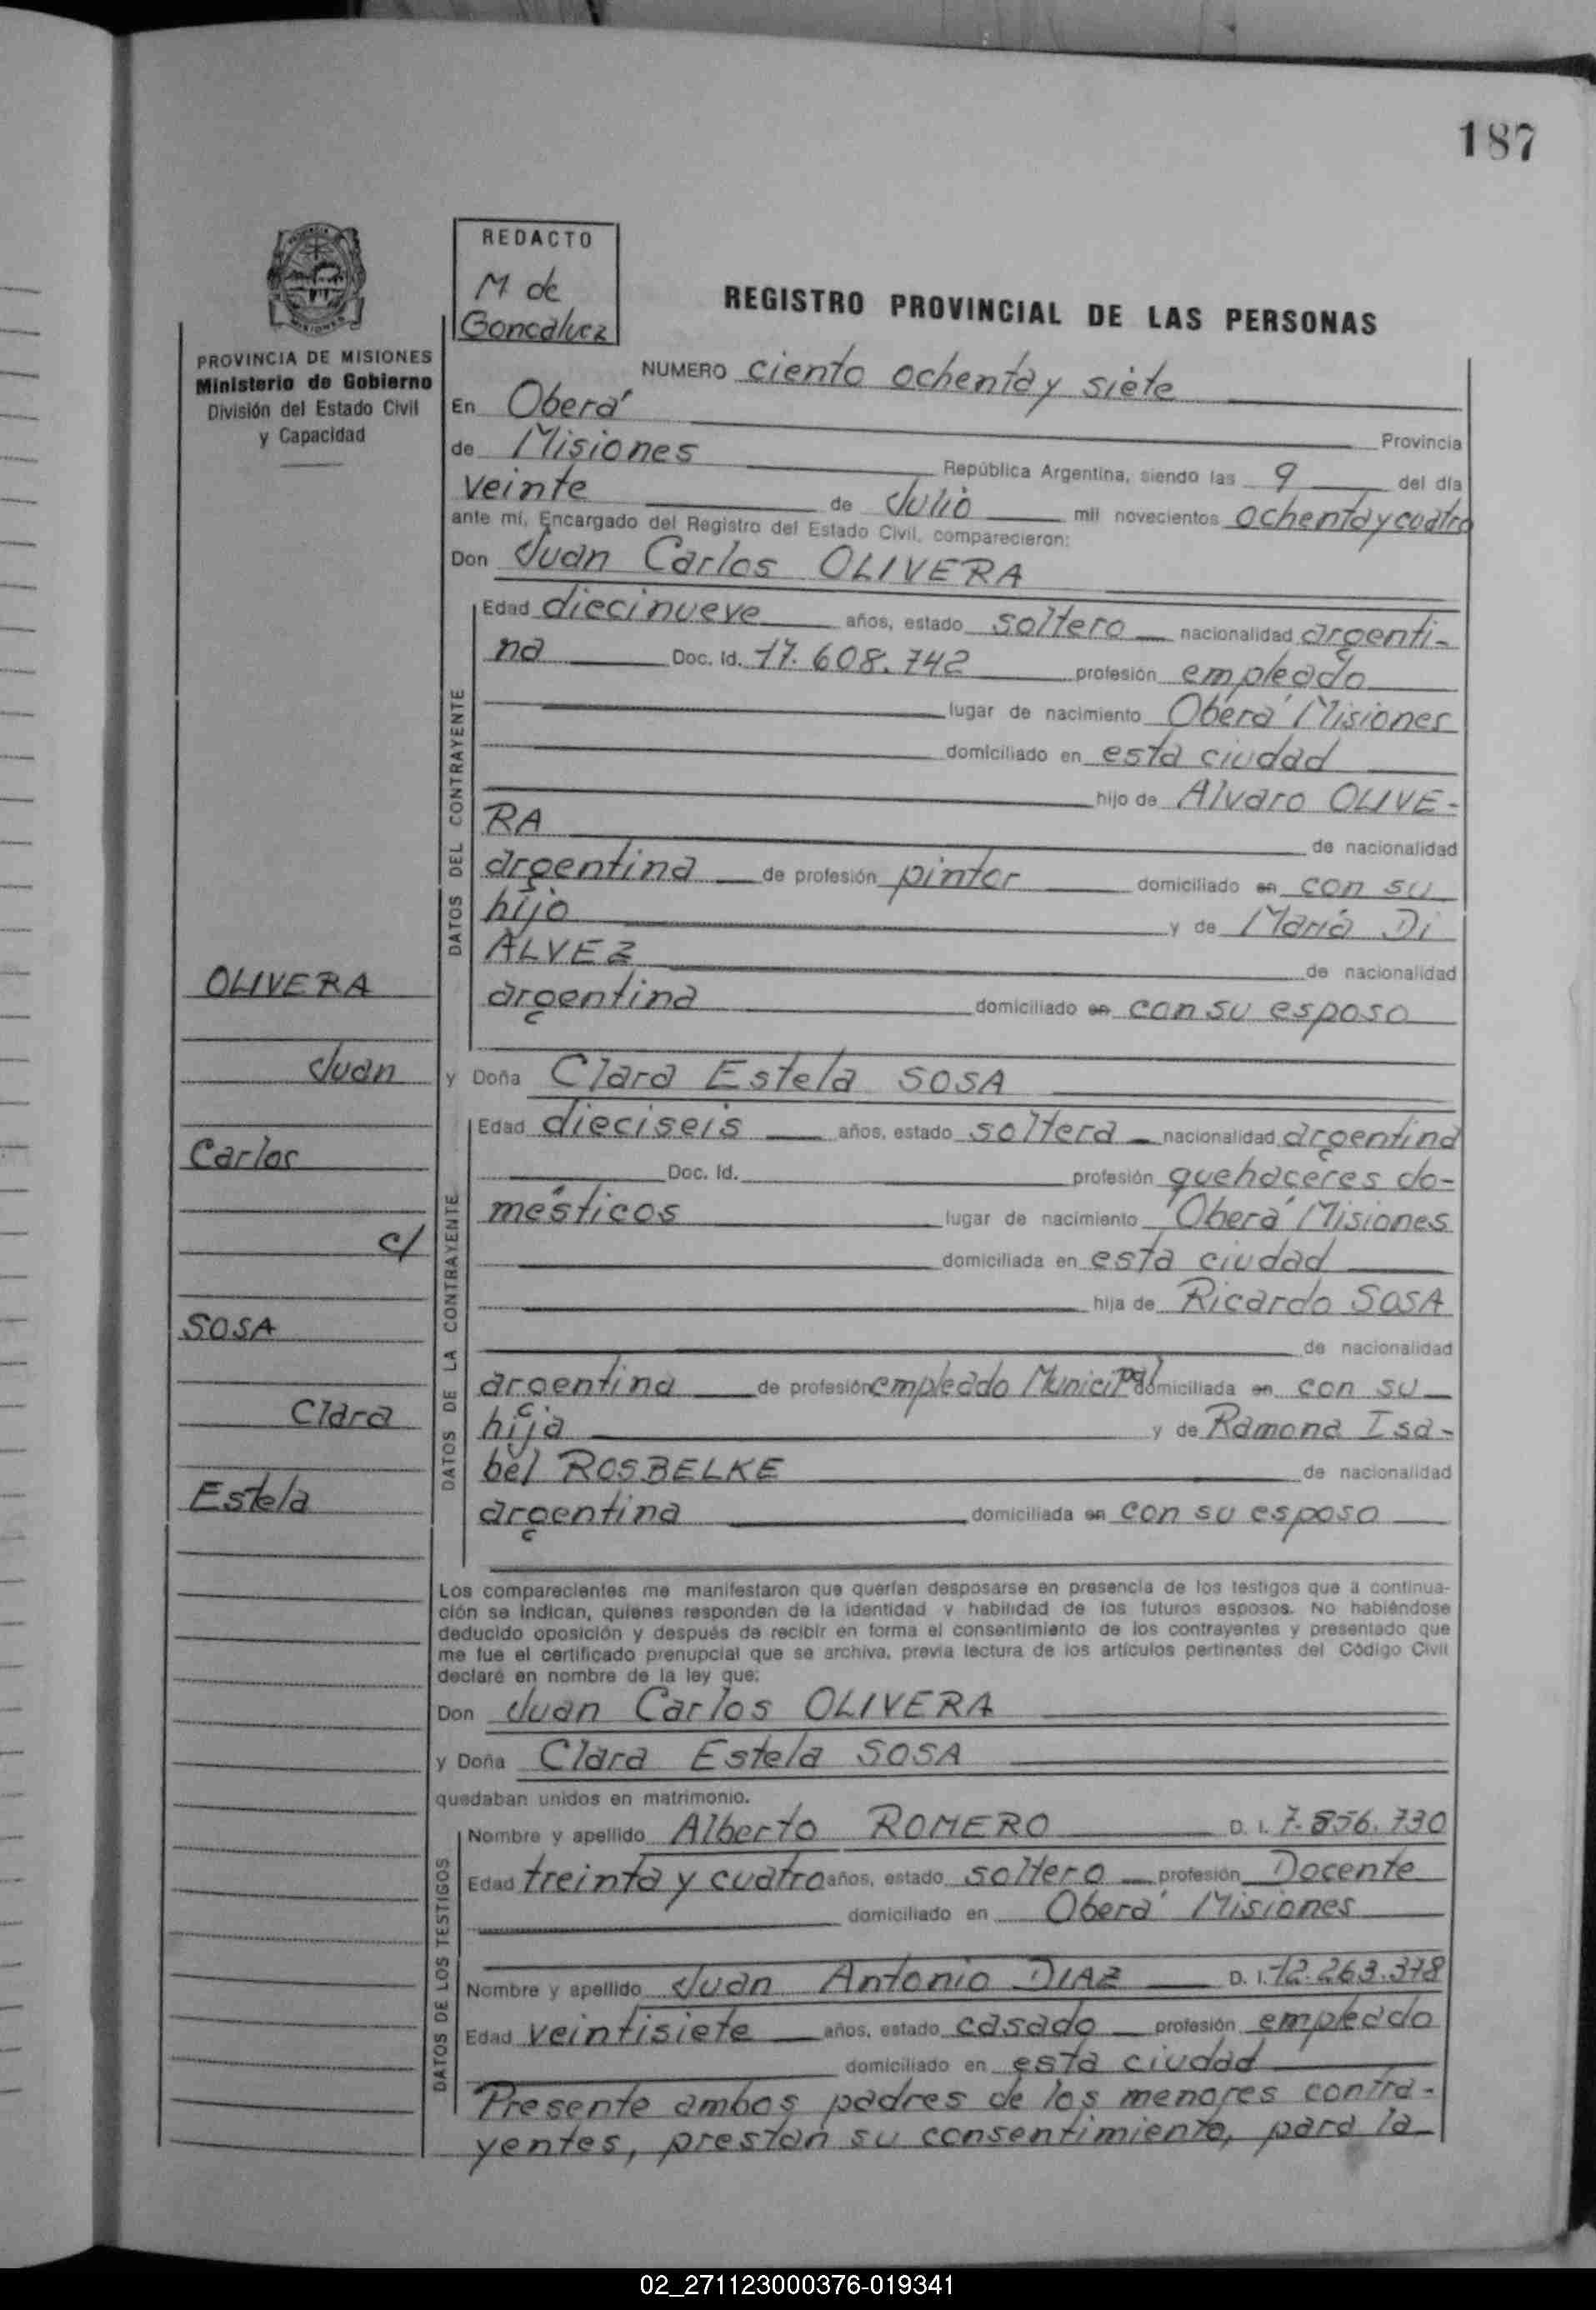 187
REDACTO
M de
Goncalvez
REGISTRO PROVINCIAL DE LAS PERSONAS
PROVINCIA DE MISIONES
Ministerio de Gobierno
División del Estado Civil
y Capacidad
NUMERO ciento ochenta y siete
En Oberá Provincia
de Misiones República Argentina, siendo las 9 del día
veinte de Julio mil novecientos ochenta y cuatro
ante mí, Encargado del Registro del Estado Civil, comparecieron:
Don Juan Carlos OLIVERA
DATOS DEL CONTRAYENTE
Edad diecinueve años, estado soltero nacionalidad argenti-
na Doc. Id. 17.608.742 profesión empleado
lugar de nacimiento Oberá Misiones
domiciliado en esta ciudad
hijo de Alvaro OLIVE-
RA de nacionalidad
argentina de profesión pintor domiciliado en con su
hijo y de María Di
ALVEZ de nacionalidad
argentina domiciliado en con su esposo
y Doña Clara Estela SOSA
DATOS DE LA CONTRAYENTE
Edad dieciseis años, estado soltera nacionalidad argentina
Doc. Id. profesión quehaceres do-
mésticos lugar de nacimiento Oberá Misiones
domiciliada en esta ciudad
hija de Ricardo SOSA
de nacionalidad
argentina de profesión empleado Municipal domiciliada en con su
hija y de Ramona Isa-
bel ROSBELKE de nacionalidad
argentina domiciliada en con su esposo
OLIVERA
Juan
Carlos
c/
SOSA
Clara
Estela
Los comparecientes me manifestaron que querían desposarse en presencia de los testigos que a continua-
ción se indican, quienes responden de la identidad y habilidad de los futuros esposos. No habiéndose
deducido oposición y después de recibir en forma el consentimiento de los contrayentes y presentado que
me fue el certificado prenupcial que se archiva, previa lectura de los artículos pertinentes del Código Civil
declaré en nombre de la ley que:
Don Juan Carlos OLIVERA
y Doña Clara Estela SOSA
quedaban unidos en matrimonio.
DATOS DE LOS TESTIGOS
Nombre y apellido Alberto ROMERO D. I. 7.856.730
Edad treinta y cuatro años, estado soltero profesión Docente
domiciliado en Oberá Misiones
Nombre y apellido Juan Antonio DIAZ D. I. 12.263.378
Edad veintisiete años, estado casado profesión empleado
domiciliado en esta ciudad
Presente ambos padres de los menores contra-
yentes, prestan su consentimiento, para la
02_271123000376-019341